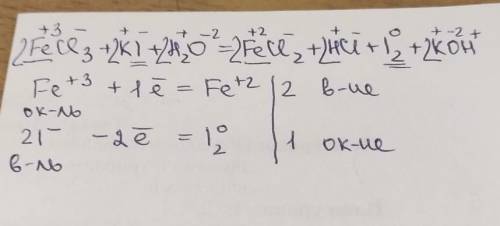 2Fe⁺³Cl₃⁻ + 2K⁺I⁻ + 2H₂⁺O⁻² = 2Fe⁺²Cl₂⁻ + 2H⁺Cl⁻ + I₂⁰ + 2K⁺O⁻²H⁺
Fe⁺³ + 1ē = Fe⁺² | 2 в-ие
ок-ль
2I⁻ - 2ē = I₂⁰ | 1 ок-ие
в-ль